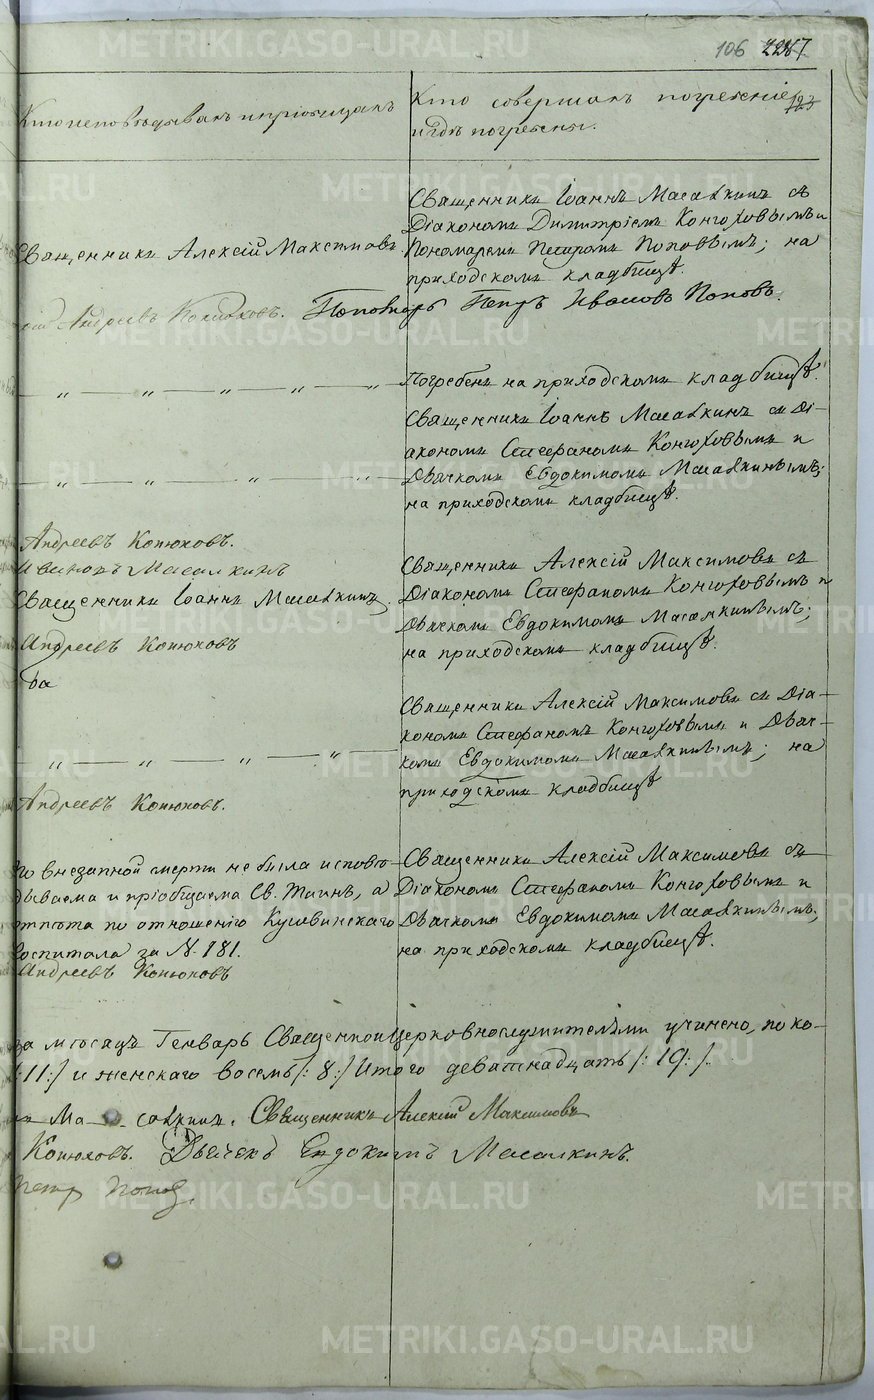 106 
Кто исповѣдывалъ и пріобщалъ
Кто совершалъ погребеніе
и гдѣ погребены.
123
Священникъ Алексій Максимовъ.
Священникъ Іоаннъ Масалкинъ съ
Діакономъ Димитріемъ Конюховымъ и
Пономаремъ Петромъ Поповымъ; на
приходскомъ кладбищѣ.
Андреевъ Конюховъ. Пономарь Петръ Ивановъ Поповъ.
— „ — „ — „ — „ — „ —
Погребенъ на приходскомъ кладбищѣ.
Священникъ Іоаннъ Масалкинъ съ Ді-
акономъ Стефаномъ Конюховымъ и
— „ — „ — „ — „ —
Дьячкомъ Евдокимомъ Масалкинымъ;
на приходскомъ кладбищѣ.
Андреевъ Конюховъ.
Ивановъ Масалкинъ
Священникъ Іоаннъ Масалкинъ
Андреевъ Конюховъ
ва
Священникъ Алексій Максимовъ съ
Діакономъ Стефаномъ Конюховымъ и
Дьячкомъ Евдокимомъ Масалкинымъ;
на приходскомъ кладбищѣ.
Священникъ Алексій Максимовъ съ Діа-
кономъ Стефаномъ Конюховымъ и Дьяч-
комъ Евдокимомъ Масалкинымъ; на
приходскомъ кладбищѣ
„ — „ — „ — „ —
Андреевъ Конюховъ.
По внезапной смерти не была исповѣ-
дываема и пріобщаема Св. Таинъ, а
отпѣта по отношенію Кушвинскаго
Госпиталя за №. 181.
Андреевъ Конюховъ
Священникъ Алексій Максимовъ съ
Діакономъ Стефаномъ Конюховымъ и
Дьячкомъ Евдокимомъ Масалкинымъ;
на приходскомъ кладбищѣ.
за мѣсяцъ Генварь Священноцерковнослужителями учинено, по ко-
/:11:/ и женскаго восемь /:8:/ Итого девятнадцать /:19:/.
Ма-салкинъ. Священникъ Алексій Максимовъ
Конюховъ. Дьячекъ Евдокимъ Масалкинъ.
Петр Попов.
METRIKI.GASO-URAL.RU